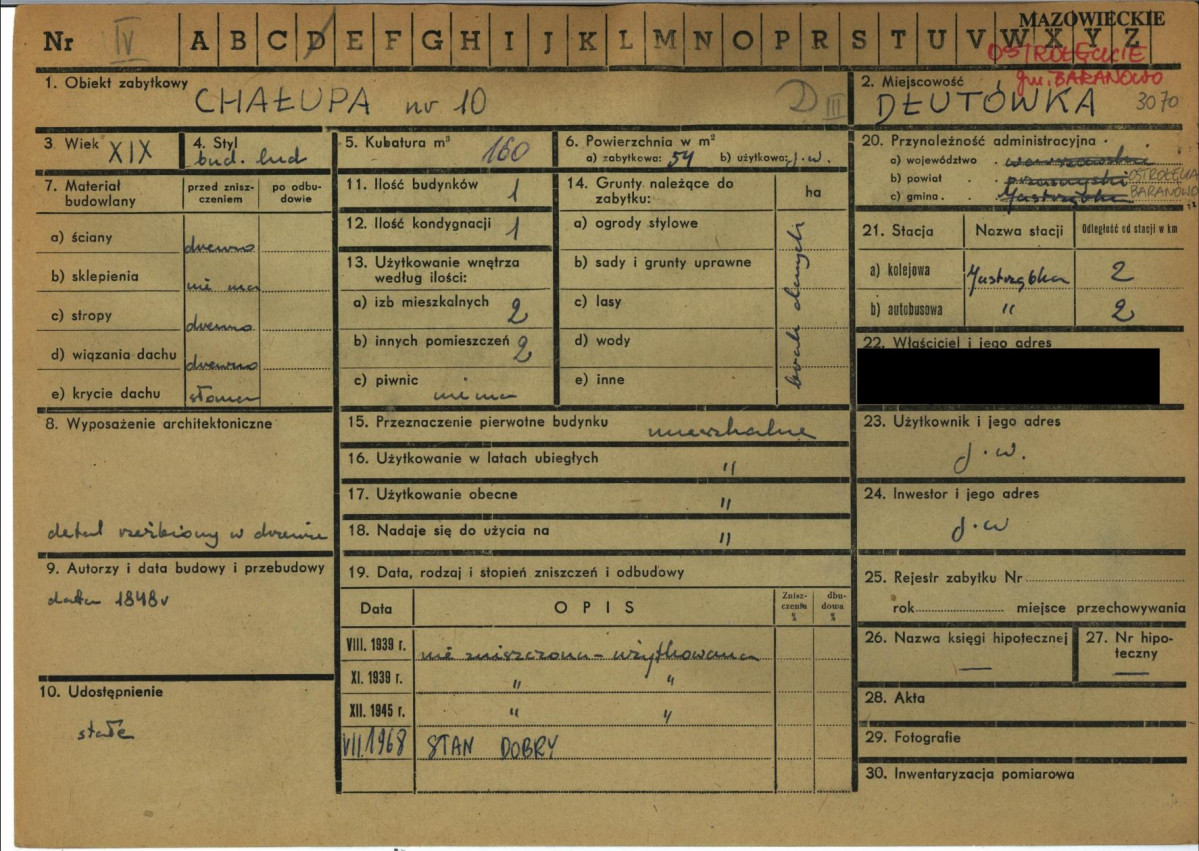 MAZOWIECKIE
Nr IV A B C D E F G H I J K L M N O P R S T U V W X Y Z
OSTROŁĘCKIE
gm. BARANOWO
1. Obiekt zabytkowy
CHAŁUPA nr 10
D III
2. Miejscowość
DŁUTÓWKA 3070
3 Wiek XIX
4. Styl
bud. lud
5. Kubatura m³ 160
6. Powierzchnia w m²
a) zabytkowa: 54 b) użytkowa: j.w.
7. Materiał budowlany
przed znisz-
czeniem
po odbu-
dowie
a) ściany drewno
b) sklepienia nie ma
c) stropy drewno
d) wiązania dachu drewno
e) krycie dachu słoma
8. Wyposażenie architektoniczne
detal rzeźbiony w drzewie
9. Autorzy i data budowy i przebudowy
data 1848 r
10. Udostępnienie
stałe
11. Ilość budynków 1
12. Ilość kondygnacji 1
13. Użytkowanie wnętrza
według ilości:
a) izb mieszkalnych 2
b) innych pomieszczeń 2
c) piwnic
nie ma
14. Grunty należące do
zabytku:
ha
a) ogrody stylowe
b) sady i grunty uprawne
c) lasy
d) wody
e) inne
brak danych
15. Przeznaczenie pierwotne budynku mieszkalne
16. Użytkowanie w latach ubiegłych "
17. Użytkowanie obecne "
18. Nadaje się do użycia na "
19. Data, rodzaj i stopień zniszczeń i odbudowy
Data
OPIS
Znisz-
czenia
%
dbu-
dowa
%
VIII. 1939 r. nie zniszczona - użytkowana
XI. 1939 r. " "
XII. 1945 r. " "
VII.1968 STAN DOBRY
20. Przynależność administracyjna
a) województwo warszawskie
b) powiat przasnyski OSTROŁĘKA
c) gmina Jastrząbka BARANOWO
21. Stacja
Nazwa stacji
Odległość od stacji w km
a) kolejowa Jastrząbka 2
b) autobusowa " 2
22. Właściciel i jego adres
23. Użytkownik i jego adres
j.w.
24. Inwestor i jego adres
j.w
25. Rejestr zabytku Nr
rok miejsce przechowywania
26. Nazwa księgi hipotecznej
—
27. Nr hipo-
teczny
—
28. Akta
29. Fotografie
30. Inwentaryzacja pomiarowa